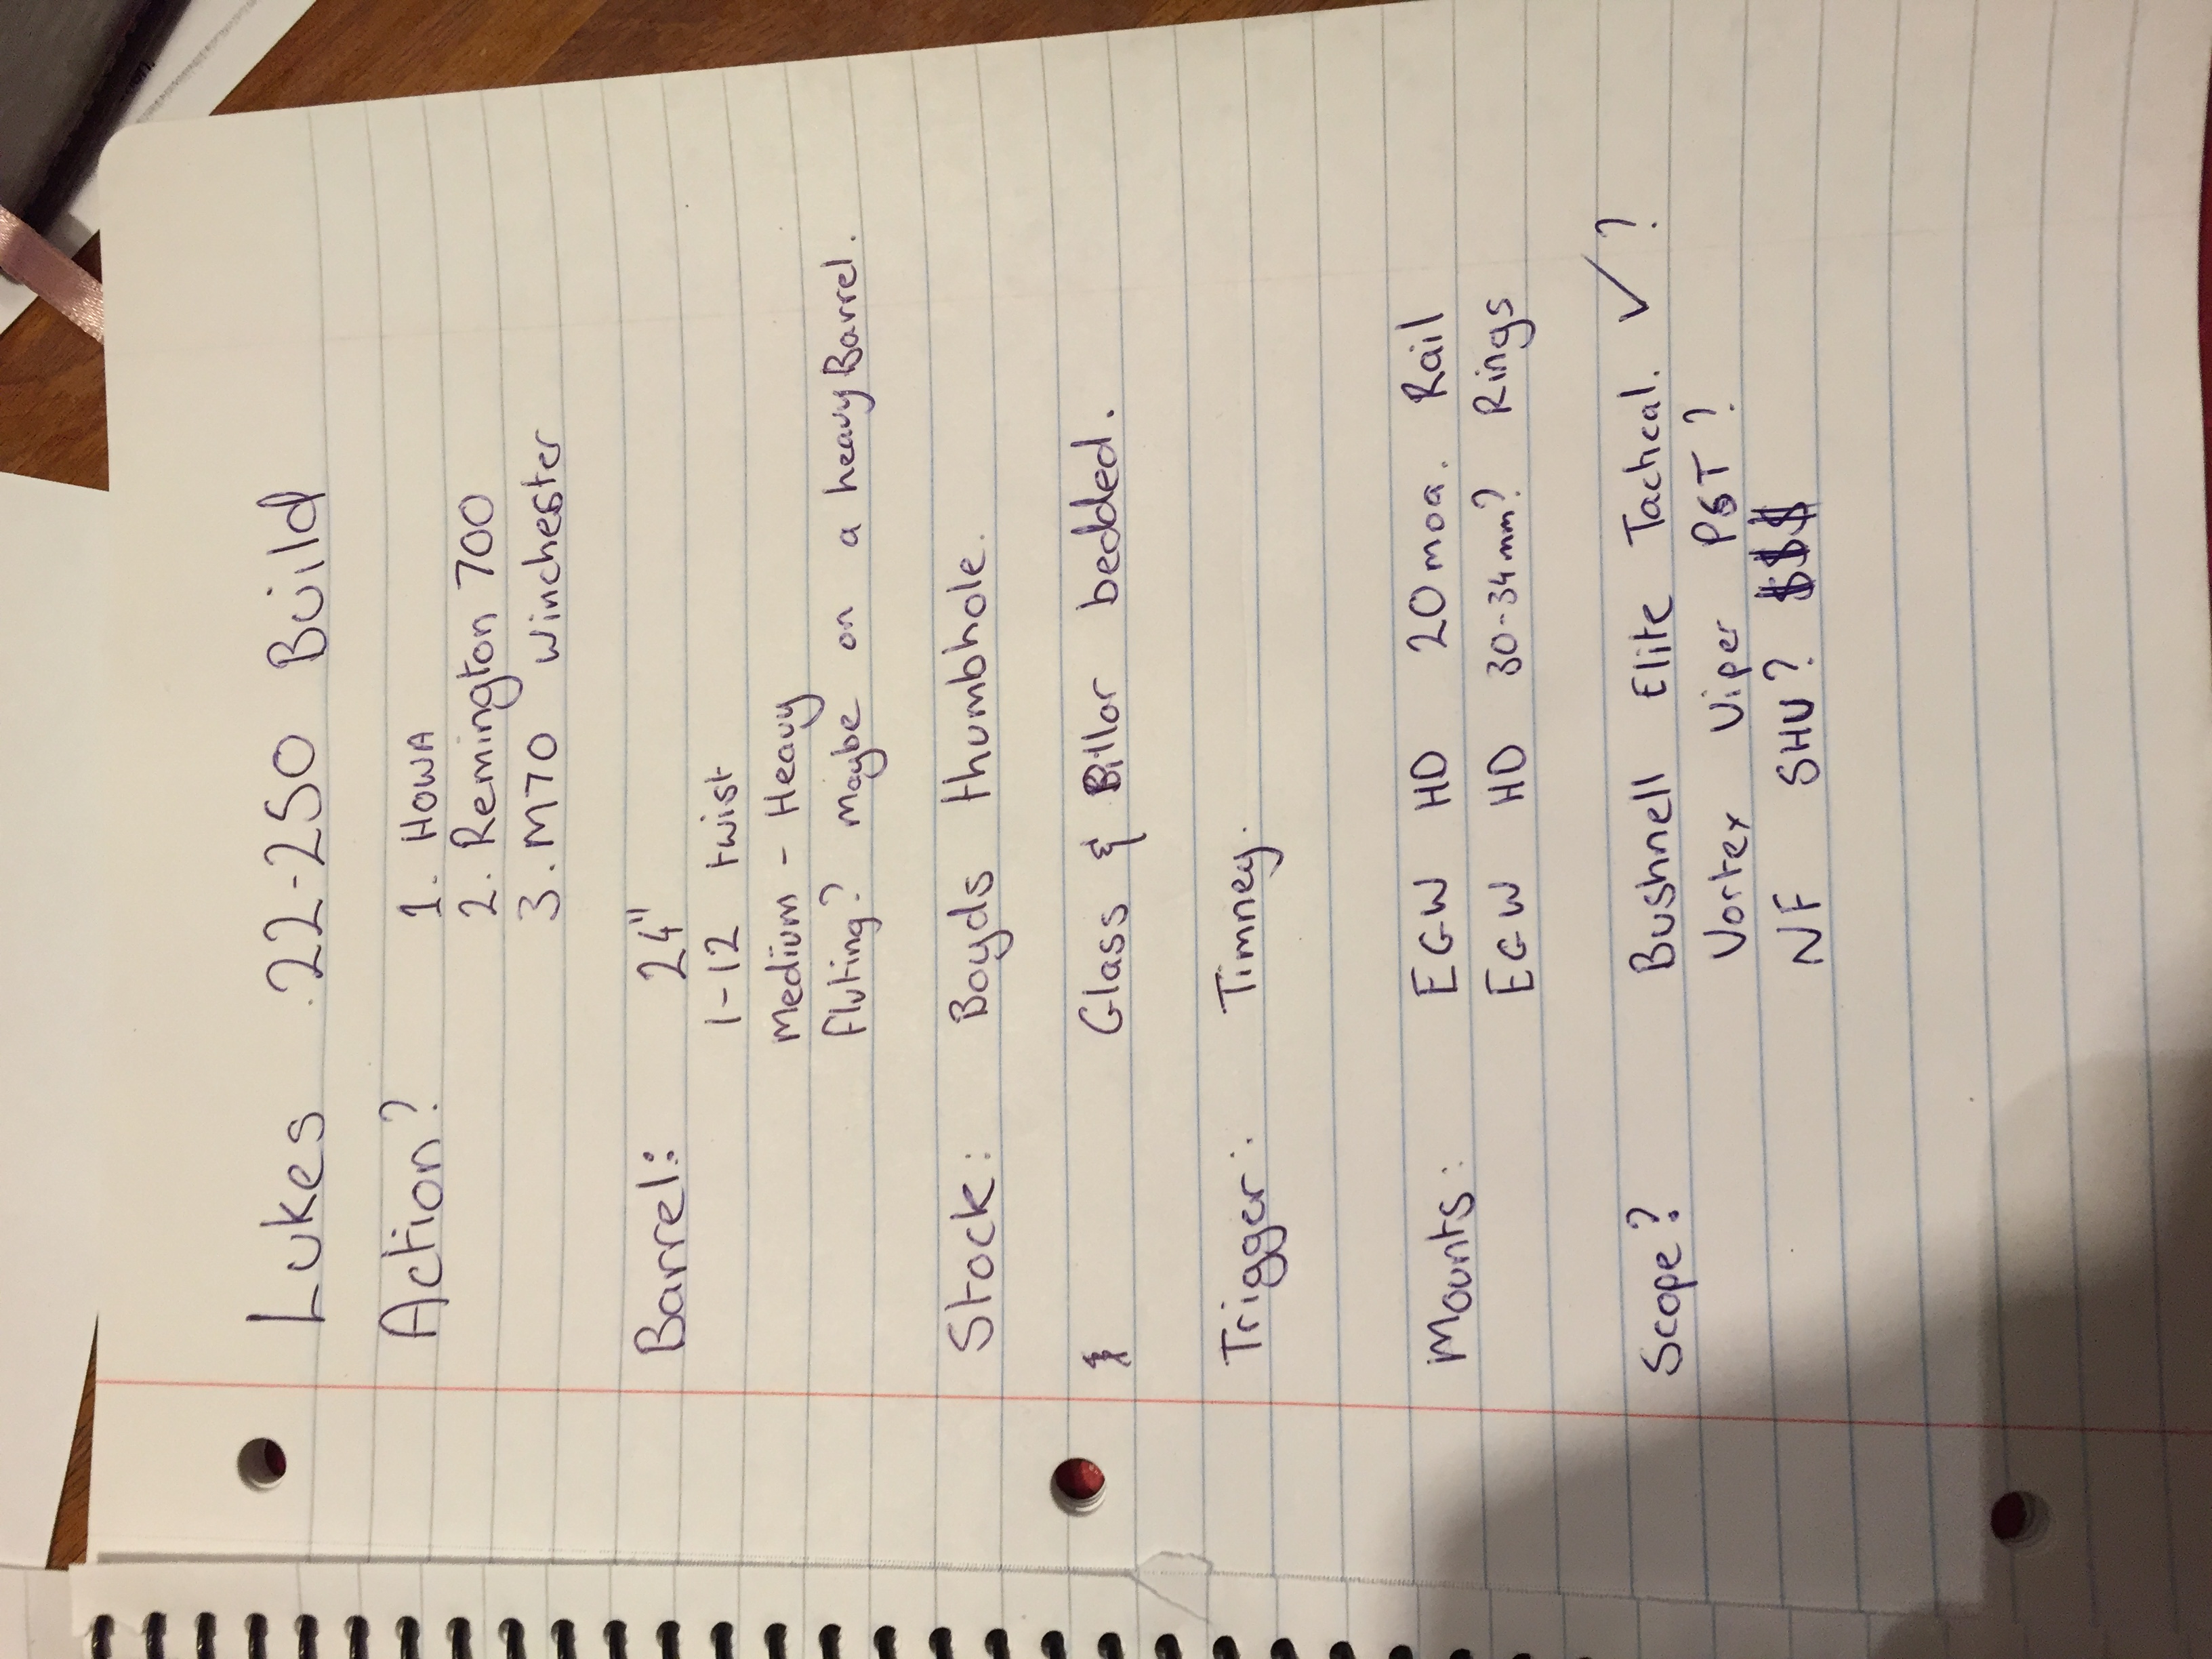 Lukes .22-250 Build
Action? 1. HOWA
2. Remington 700
3. M70 Winchester
Barrel: 24"
1-12 twist
Medium - Heavy
fluting? maybe on a heavy Barrel.
Stock: Boyds thumbhole.
Glass & Pillar bedded.
Trigger: Timney.
Mounts: EGW HD 20moa. Rail
EGW HD 30-34mm? Rings
Scope? Bushnell Elite Tactical. ✓?
Vortex Viper PST?
NF SHV? $$$